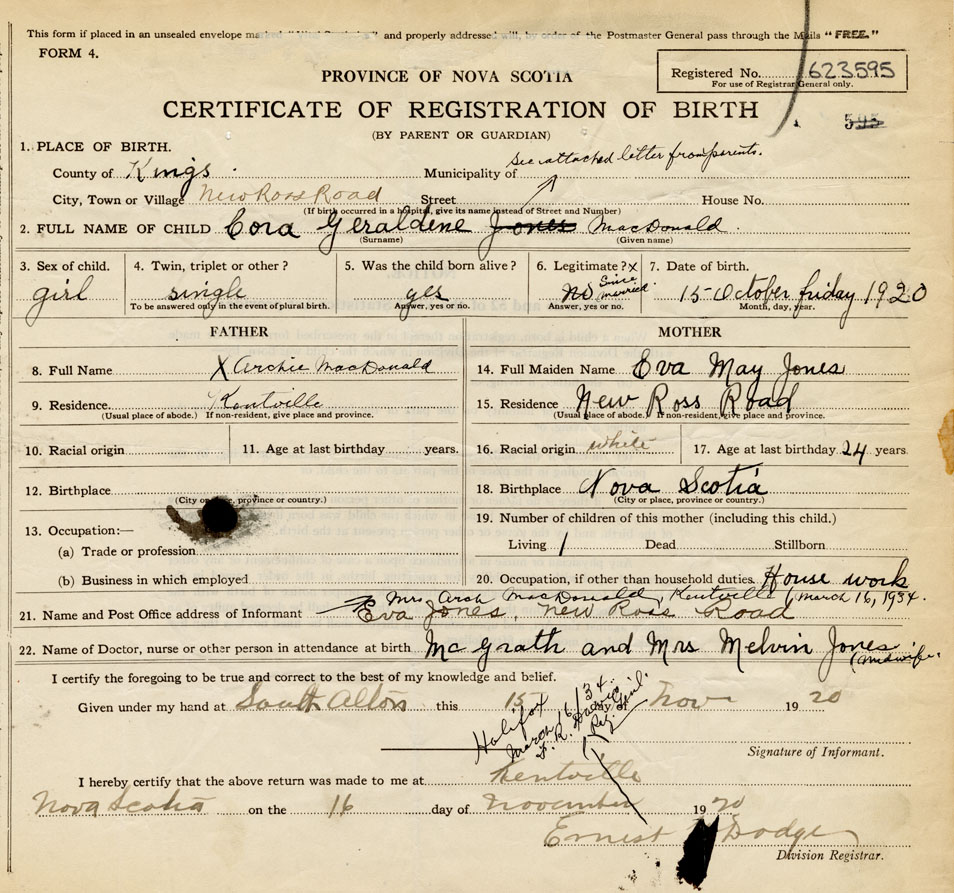 This form if placed in an unsealed envelope and properly addressed will, by order of the Postmaster General pass through the Mails "FREE."
FORM 4.
PROVINCE OF NOVA SCOTIA
Registered No. 623595
For use of Registrar General only.
CERTIFICATE OF REGISTRATION OF BIRTH
595
(BY PARENT OR GUARDIAN)
1. PLACE OF BIRTH.
See attached letter from parents.
County of Kings Municipality of
City, Town or Village New Ross Road Street House No.
(If birth occurred in a hospital, give its name instead of Street and Number)
2. FULL NAME OF CHILD Cora Geraldene Jones MacDonald.
(Surname) (Given name)
3. Sex of child. 4. Twin, triplet or other? 5. Was the child born alive? 6. Legitimate? x 7. Date of birth.
girl single yes no Since married. 15 October friday 1920
To be answered only in the event of plural birth. Answer, yes or no. Answer, yes or no. Month, day, year.
FATHER
8. Full Name X Archie MacDonald
9. Residence Kentville
(Usual place of abode.) If non-resident, give place and province.
10. Racial origin 11. Age at last birthday years.
12. Birthplace
(City or place, province or country.)
13. Occupation:—
(a) Trade or profession
(b) Business in which employed
MOTHER
14. Full Maiden Name Eva May Jones
15. Residence New Ross Road
(Usual place of abode.) If non-resident, give place and province.
16. Racial origin white 17. Age at last birthday 24 years.
18. Birthplace Nova Scotia
(City or place, province or country.)
19. Number of children of this mother (including this child.)
Living 1 Dead Stillborn
20. Occupation, if other than household duties. House work
Mrs. Arch MacDonald, Kentville (March 16, 1934.
21. Name and Post Office address of Informant Eva Jones, New Ross Road
22. Name of Doctor, nurse or other person in attendance at birth McGrath and Mrs Melvin Jones (midwife.
I certify the foregoing to be true and correct to the best of my knowledge and belief.
Given under my hand at South Alton this 15 day of Nov 1920
Halifax
March 16/34.
Reg. Genl.
Signature of Informant.
I hereby certify that the above return was made to me at Kentville
Nova Scotia on the 16 day of November 1920
Ernest Dodge
Division Registrar.